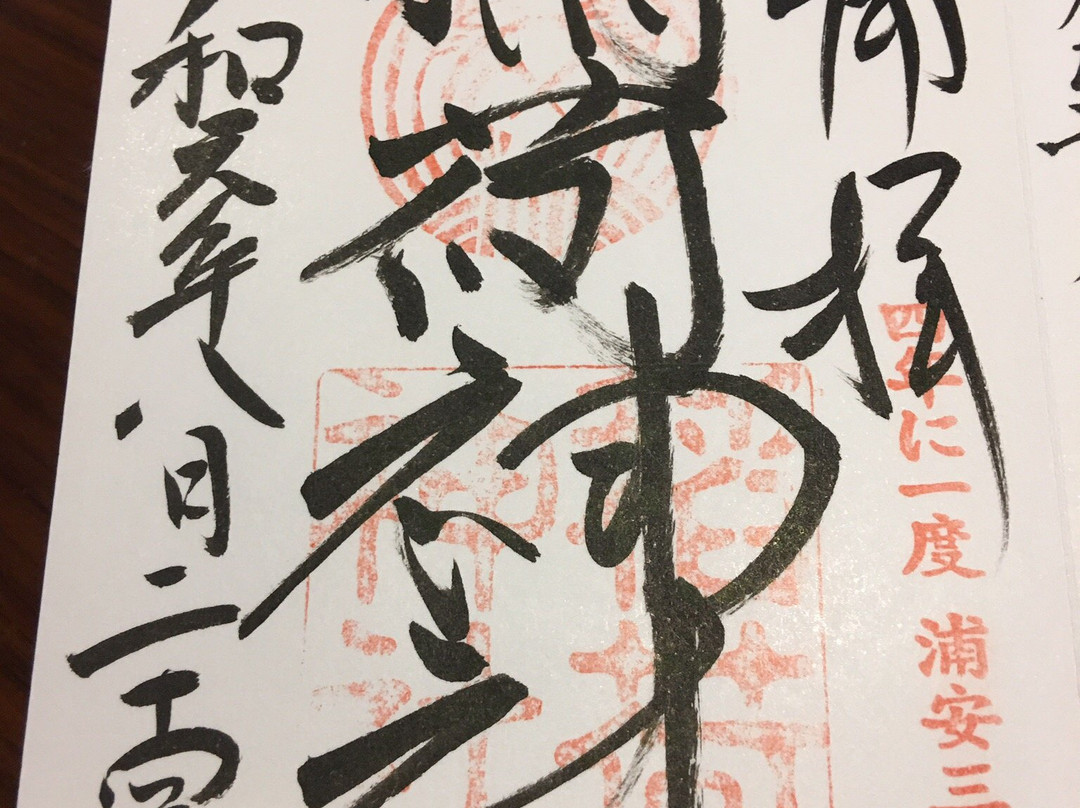 拝
四年に一度 浦安三
荷神社
稲荷
神社
和元年八月二十